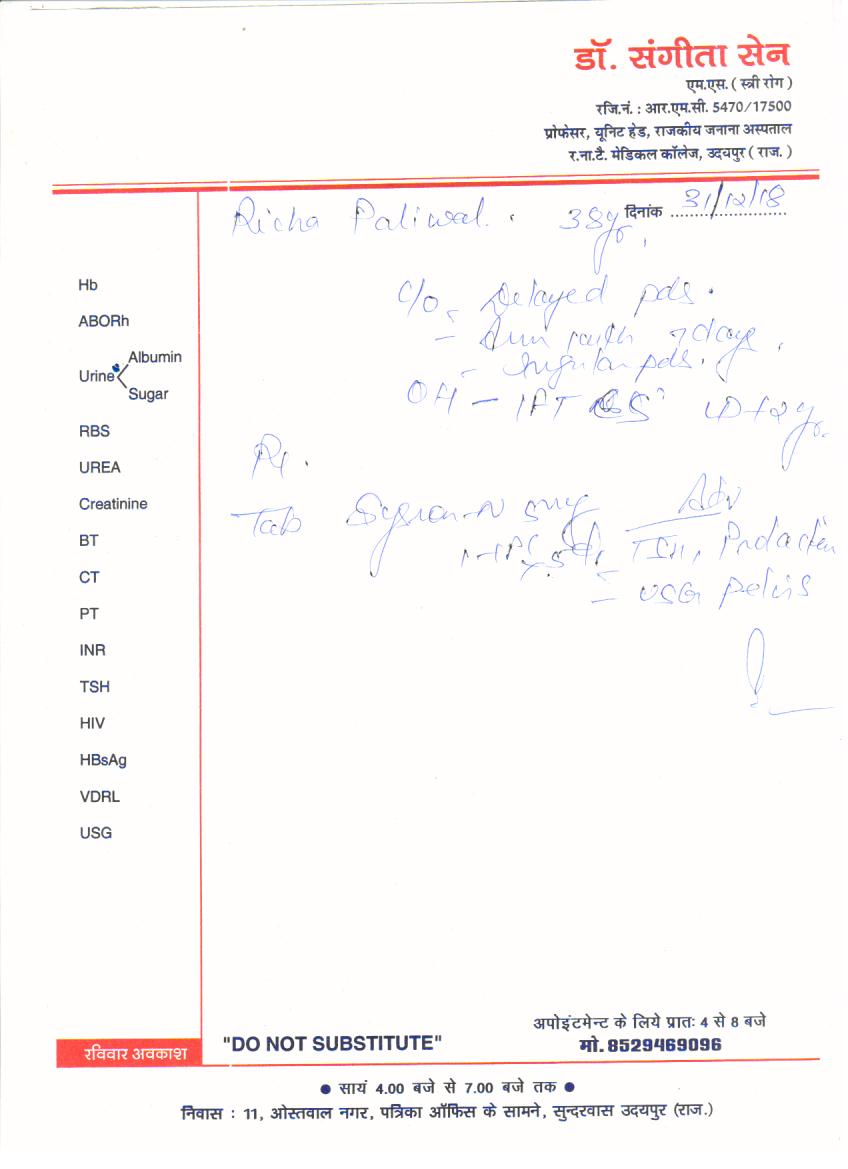 डॉ. संगीता सेन
एम.एस. ( स्त्री रोग )
रजि.नं. : आर.एम.सी. 5470/17500
प्रोफेसर, यूनिट हेड, राजकीय जनाना अस्पताल
र.ना.टै. मेडिकल कॉलेज, उदयपुर ( राज. )
Richa Paliwal. 38y दिनांक 31/12/18
Hb
ABORh
Urine Albumin
Sugar
RBS
UREA
Creinine
BT
CT
PT
INR
TSH
HIV
HBsAg
VDRL
USG
c/o - Delayed pds.
- 7 days,
- Irregular pds.
OH -
Rx.
Tab 5mg Adv
TSH, Prolactin
- USG pelvis
रविवार अवकाश
"DO NOT SUBSTITUTE"
अपोइंटमेन्ट के लिये प्रातः 4 से 8 बजे
मो. 8529469096
● सायं 4.00 बजे से 7.00 बजे तक ●
निवास : 11, ओस्तवाल नगर, पत्रिका ऑफिस के सामने, सुन्दरवास उदयपुर (राज.)